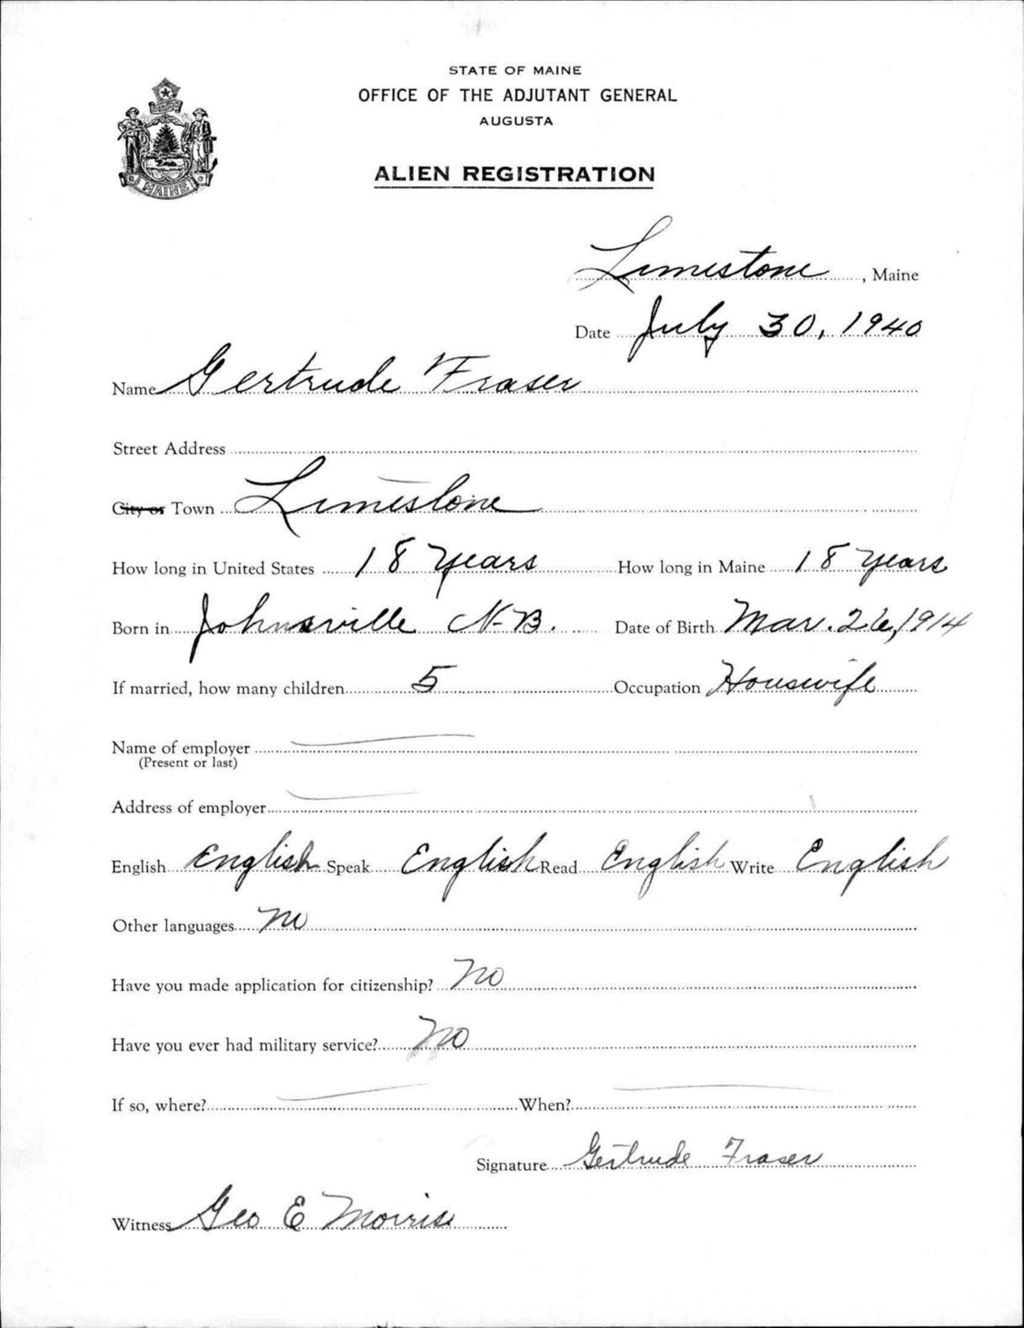 STATE OF MAINE
OFFICE OF THE ADJUTANT GENERAL
AUGUSTA
ALIEN REGISTRATION
MAINE
Limestone, Maine
Date July 30, 1940
Name Gertrude Fraser
Street Address
City or Town Limestone
How long in United States 18 Years How long in Maine 18 Years
Born in Johnsville N-B. Date of Birth Mar. 26, 1914
If married, how many children 5 Occupation Housewife
Name of employer
(Present or last)
Address of employer
English English Speak English Read English Write English
Other languages no
Have you made application for citizenship? No
Have you ever had military service? No
If so, where? When?
Signature Gertrude Fraser
Witness Geo E Morris